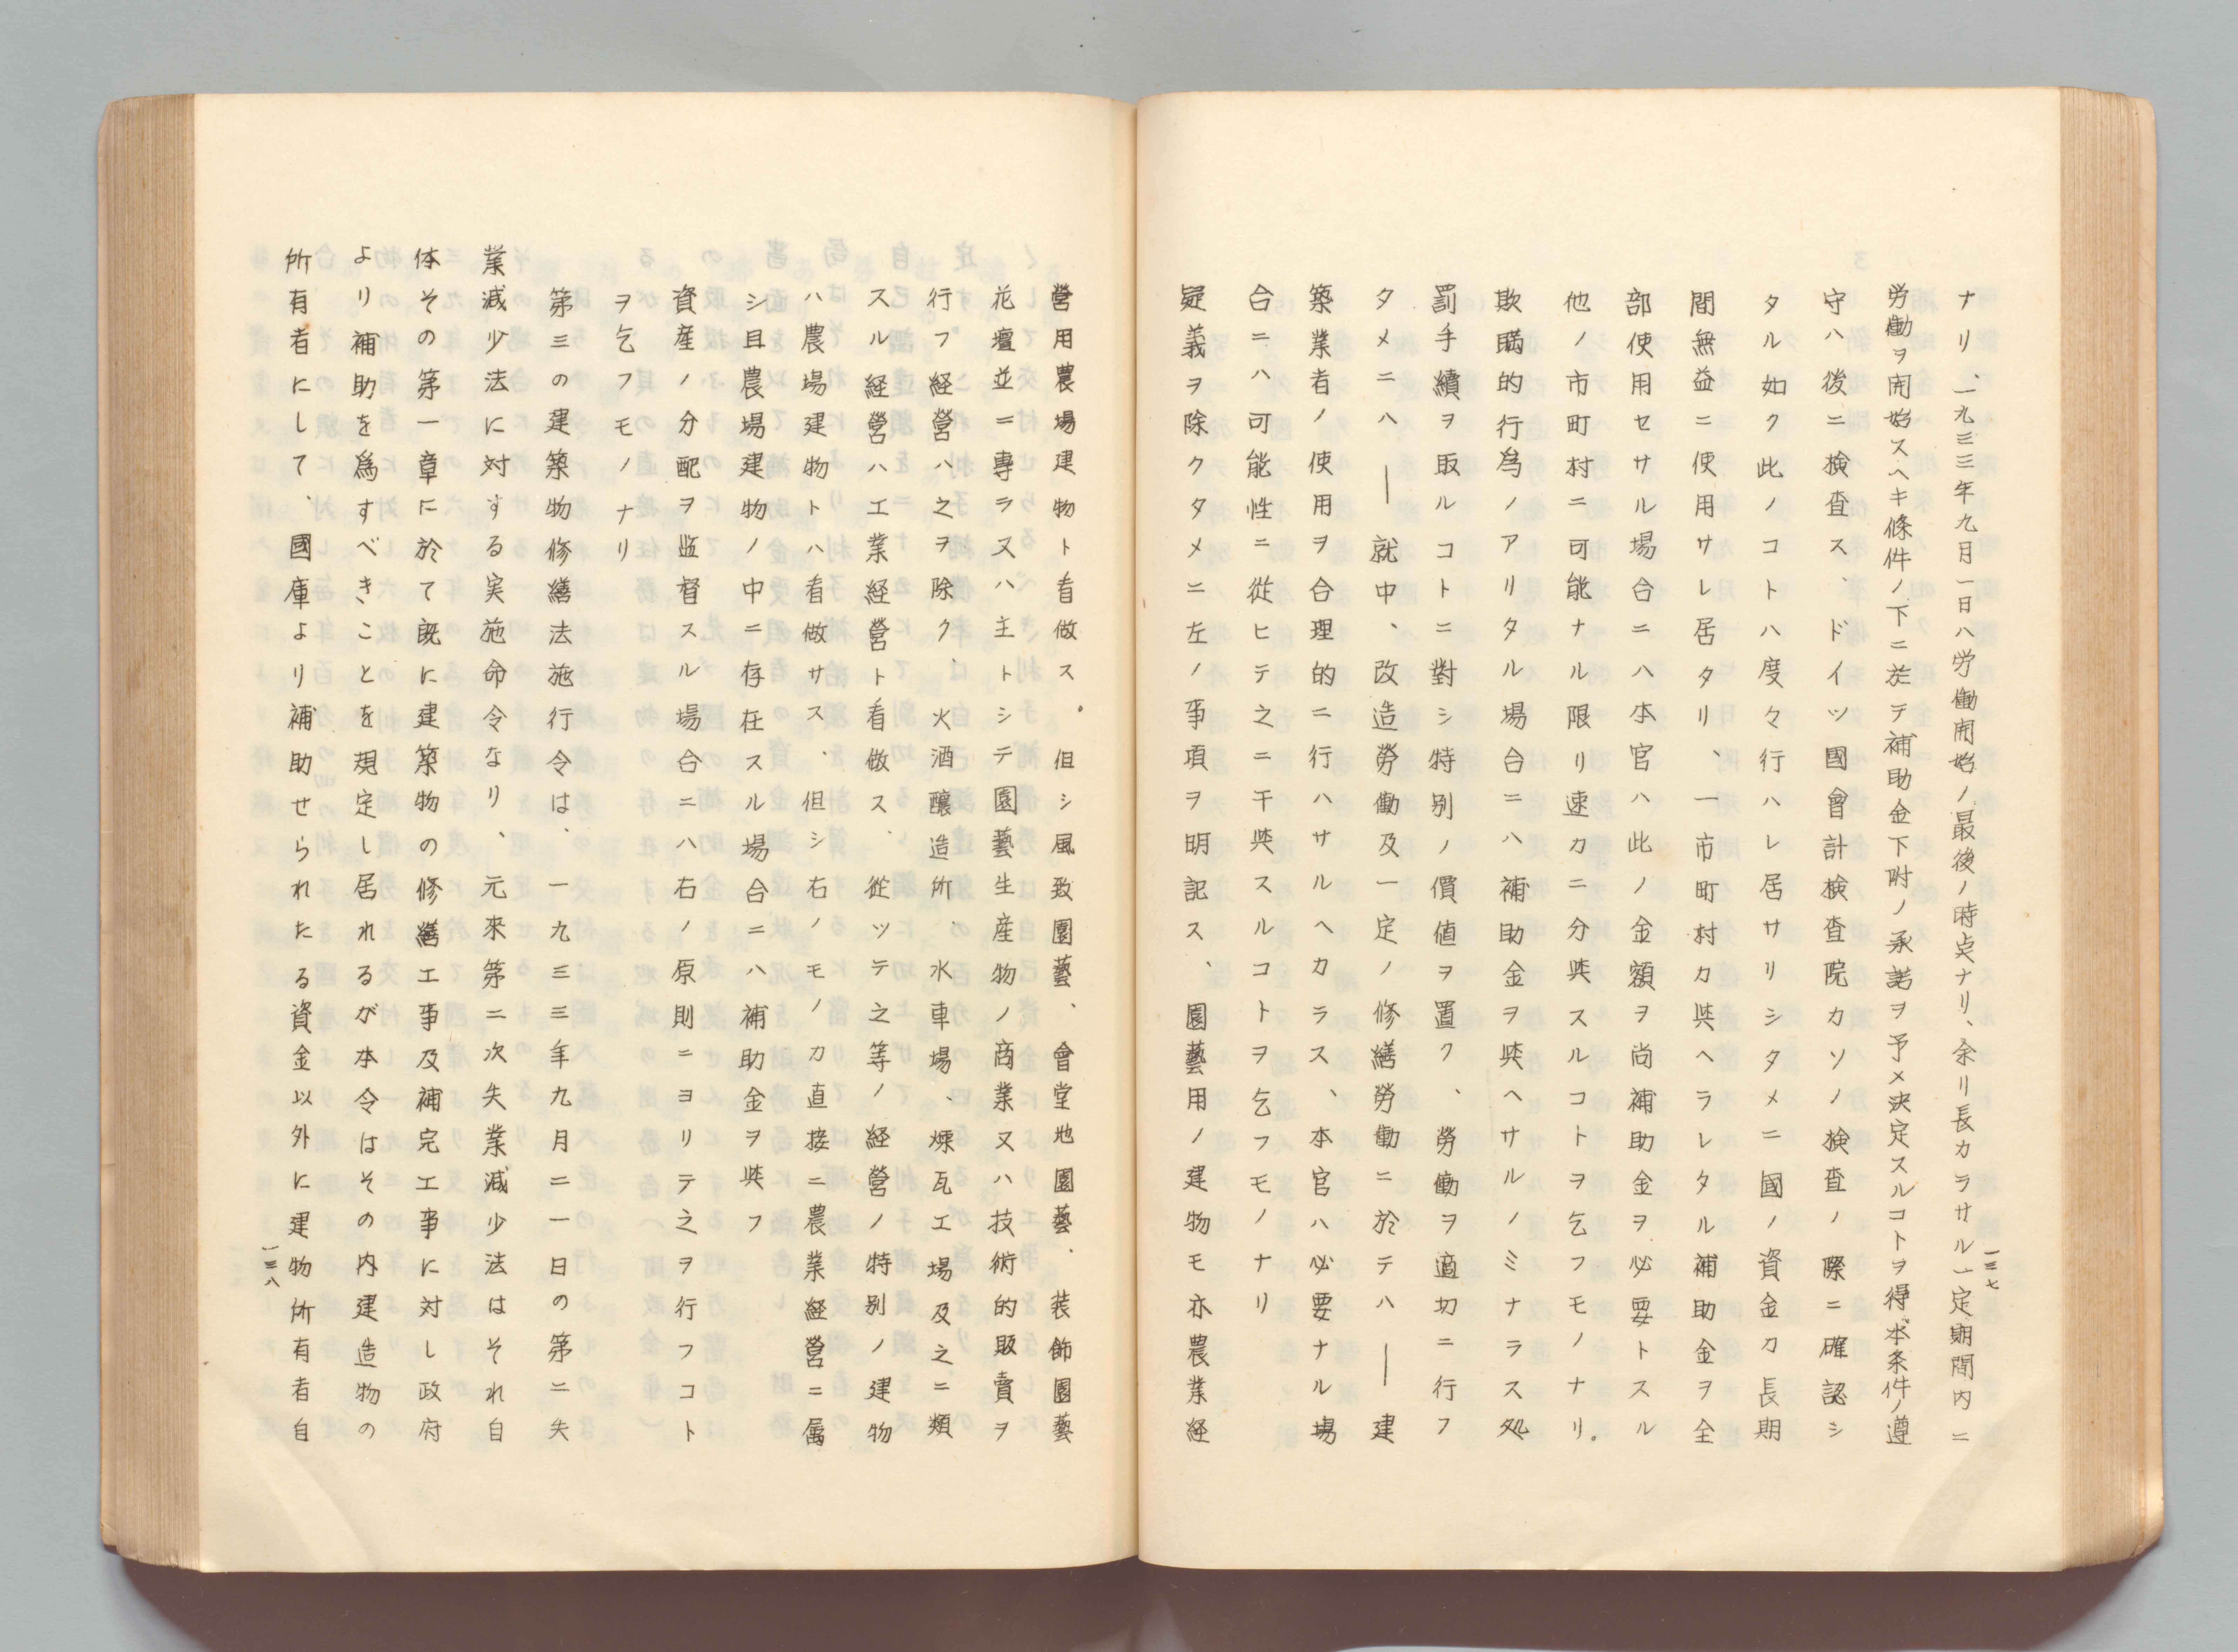 ナリ、一九三三年九月一日ハ労働開始ノ最後ノ時点ナリ、余リ長カラサル一定期間内ニ
労働ヲ開始スヘキ條件ノ下ニ於テ補助金下附ノ承諾ヲ予メ決定スルコトヲ得、本条件ノ遵
守ハ後ニ検査ス、ドイツ國會計検査院カソノ検査ノ際ニ確認シ
タル如ク此ノコトハ度々行ハレ居サリシタメニ國ノ資金カ長期
間無益ニ使用サレ居タリ、一市町村カ與ヘラレタル補助金ヲ全
部使用セサル場合ニハ本官ハ此ノ金額ヲ尚補助金ヲ必要トスル
他ノ市町村ニ可能ナル限リ速カニ分與スルコトヲ乞フモノナリ。
欺瞞的行為ノアリタル場合ニハ補助金ヲ與ヘサルノミナラス処
罰手續ヲ取ルコトニ對シ特別ノ價値ヲ置ク、勞働ヲ適切ニ行フ
タメニハ―就中、改造勞働及一定ノ修繕勞働ニ於テハ―建
築業者ノ使用ヲ合理的ニ行ハサルヘカラス、本官ハ必要ナル場
合ニハ可能性ニ從ヒテ之ニ干與スルコトヲ乞フモノナリ
疑義ヲ除クタメニ左ノ事項ヲ明記ス、園藝用ノ建物モ亦農業経
一三七
營用農場建物ト看做ス。但シ風致園藝、會堂地園藝、装飾園藝
花壇並ニ專ラ又ハ主トシテ園藝生産物ノ商業又ハ技術的販賣ヲ
行フ経營ハ之ヲ除ク、火酒釀造所、水車場、煉瓦工場及之ニ類
スル経營ハ工業経營ト看做ス、從ツテ之等ノ経營ノ特別ノ建物
ハ農場建物トハ看做サス、但シ右ノモノカ直接ニ農業経營ニ属
シ且農場建物ノ中ニ存在スル場合ニハ補助金ヲ與フ
資産ノ分配ヲ監督スル場合ニハ右ノ原則ニヨリテ之ヲ行フコト
ヲ乞フモノナリ
第三の建築物修繕法施行令は、一九三三年九月二一日の第二失
業減少法に対する実施命令なり、元來第二次失業減少法はそれ自
体その第一章に於て既に建築物の修繕工事及補完工事に対し政府
より補助を為すべきことを規定し居れるが本令はその内建造物の
所有者にして、國庫より補助せられたる資金以外に建物所有者自
一三八